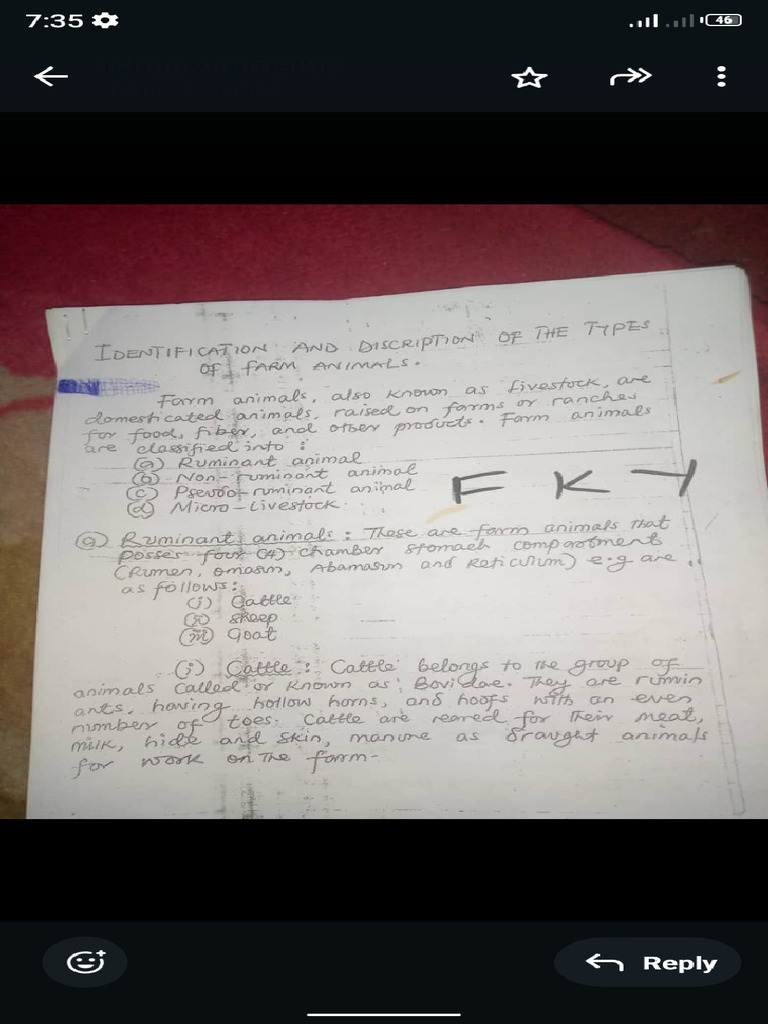 7:35
46
IDENTIFICATION AND DISCRIPTION OF THE TYPES
OF FARM ANIMALS.
Farm animals, also known as livestock, are
domesticated animals, raised on farms or ranches
for food, fiber, and other products. Farm animals
are classified into :
(a) Ruminant animal
(b) Non-ruminant animal
(c) Pseudo-ruminant animal
(d) Micro-Livestock
F K Y
(a) Ruminant animals : These are farm animals that
posses four (4) chamber stomach compartment
(Rumen, omasum, Abamasum and Reticulum) e.g are
as follows:
(i) Cattle
(ii) sheep
(iii) Goat
(i) Cattle : Cattle belongs to the group of
animals called or known as Bovidae. They are rumin
ants, having hollow horns, and hoofs with an even
number of toes. Cattle are reared for their meat,
milk, hide and skin, manure as draught animals
for work on the farm-
Reply